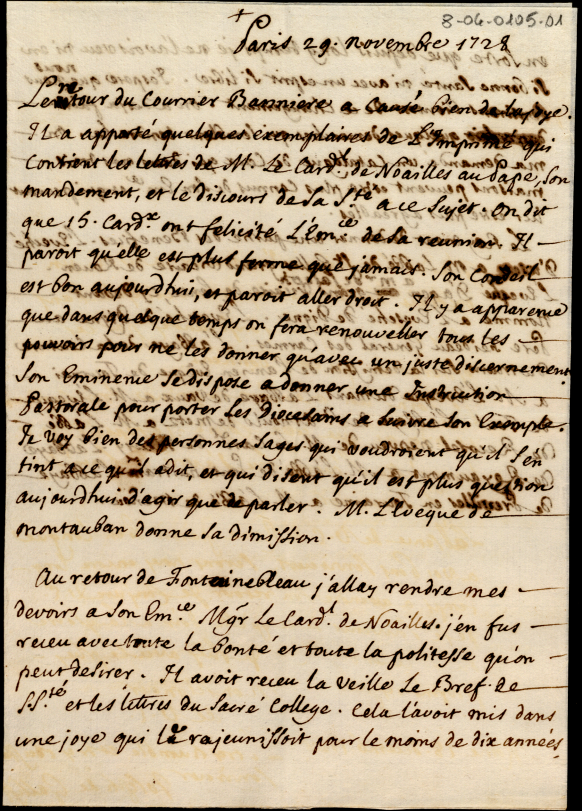 8-04-0105-01
+
Paris 29. novembre 1728
Le retour du Courrier Banniere a causé bien de la joye.
Il a apporté quelques exemplaires de L'Imprimé qui
contient les lettres de M. Le Card.l de Noailles au Pape, son
mandement, et le discours de Sa S.té a ce sujet. On dit
que 15. Card.x ont felicité L'Em.ce de sa reunion. Il
paroit qu'elle est plus ferme que jamais. Son Conseil
est bon aujourdhui, et paroit aller droit. Il y a apparence
que dans quelque temps on fera renouveller tous les
pouvoirs pour ne les donner qu'avec un juste discernement.
Son Eminence se dispose a donner une Instruction
Pastorale pour porter ses Diocesains a suivre son Exemple.
Je voy bien des personnes sages qui voudroient qu'il s'en
tint a ce qu'il a dit, et qui disent qu'il est plus question
aujourdhui d'agir que de parler. M. L'Eveque de
montauban donne sa dimission.
Au retour de Fontainebleau j'allay rendre mes
devoirs a Son Em.ce Mgr Le Card.l de Noailles. j'en fus
receu avec toute la bonté et toute la politesse qu'on
peut desirer. Il avoit receu la veille Le Bref de
S.S.té et les lettres du Sacré College. Cela l'avoit mis dans
une joye qui le rajeunissoit pour le moins de dix années